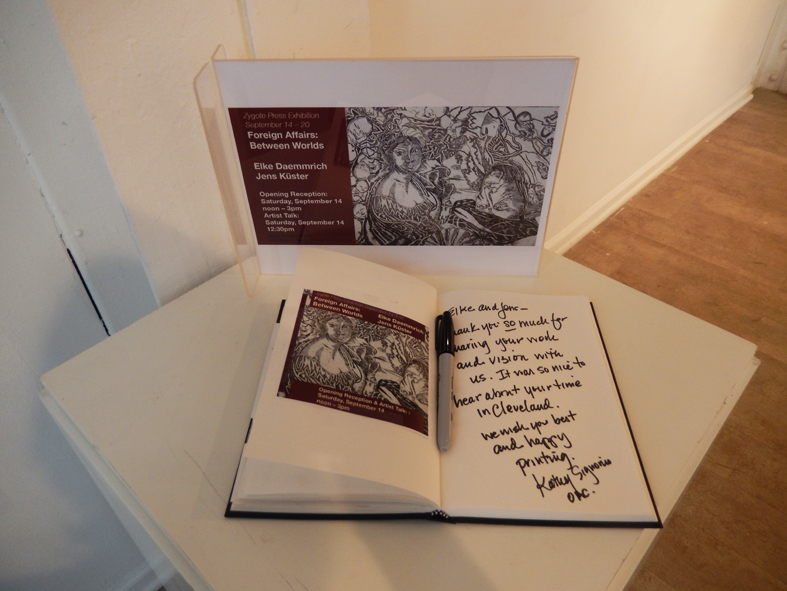 Zygote Press Exhibition
September 14 – 20
Foreign Affairs:
Between Worlds
Elke Daemmrich
Jens Küster
Opening Reception:
Saturday, September 14
noon – 3pm
Artist Talk:
Saturday, September 14
12:30pm
Foreign Affairs:
Between Worlds
Elke Daemmrich
Jens Küster
Opening Reception & Artist Talk:
Saturday, September 14
noon – 3pm
Elke and Jens–
you so much for
your work
and vision with
us. It was so nice to
hear about your time
in Cleveland.
we wish you best
and happy
printing.
Kathy